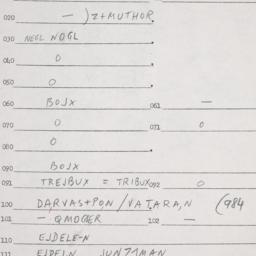 020 — ) Z+MUTHOR.
030 NEGL NOGL
040 0
050 0
060 BOJX 061 —
070 0 071 0
080 0
090 BOJX
091 TREJBUX = TRIBUX 092 0
100 DARVAS+PON / VATARA,N (984
101 — QMOGGER 102 —
110 EJDELE-N
111 EJDELN JUNZMAN